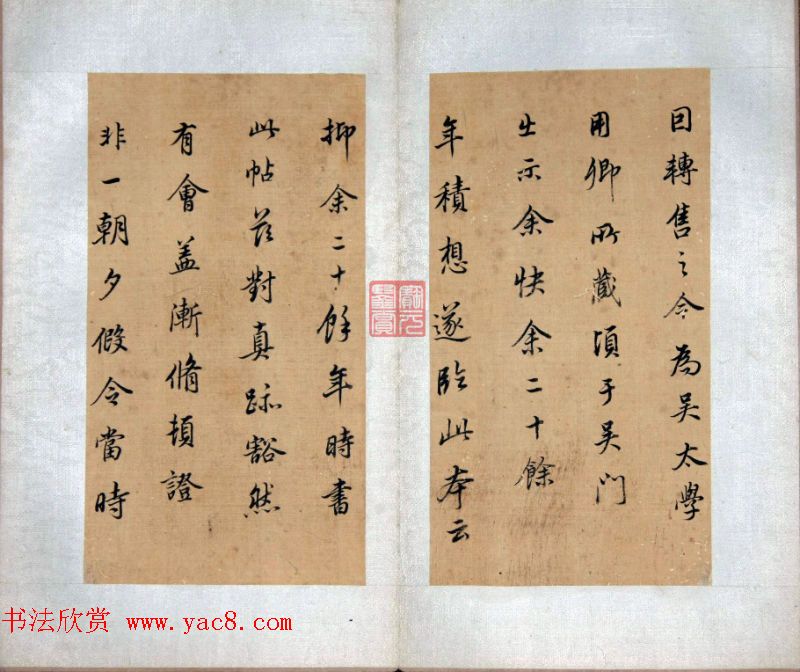 回轉售之今為吳太學
用卿所藏頃于吳門
出示余快余二十餘
年積想遂臨此本云
抑余二十餘年時書
此帖茲對真跡豁然
有會蓋漸脩頓證
非一朝夕假令當時
书法欣赏 www.yac8.com